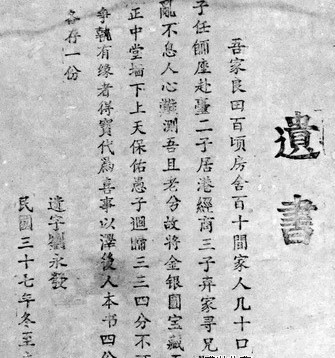 遺書
吾家良田百頃房舍百十間家人几十口
子任師座赴臺二子居港經商三子弃家寻兄
亂不息人心難測吾且老兮故將金銀圓宝藏
正中堂墙下上天保佑愚子迴歸三三四分不
爭執有缘者得寶代為喜事以澤後人本书四份
各存一份
遗字劉永發
民國三十七年冬至